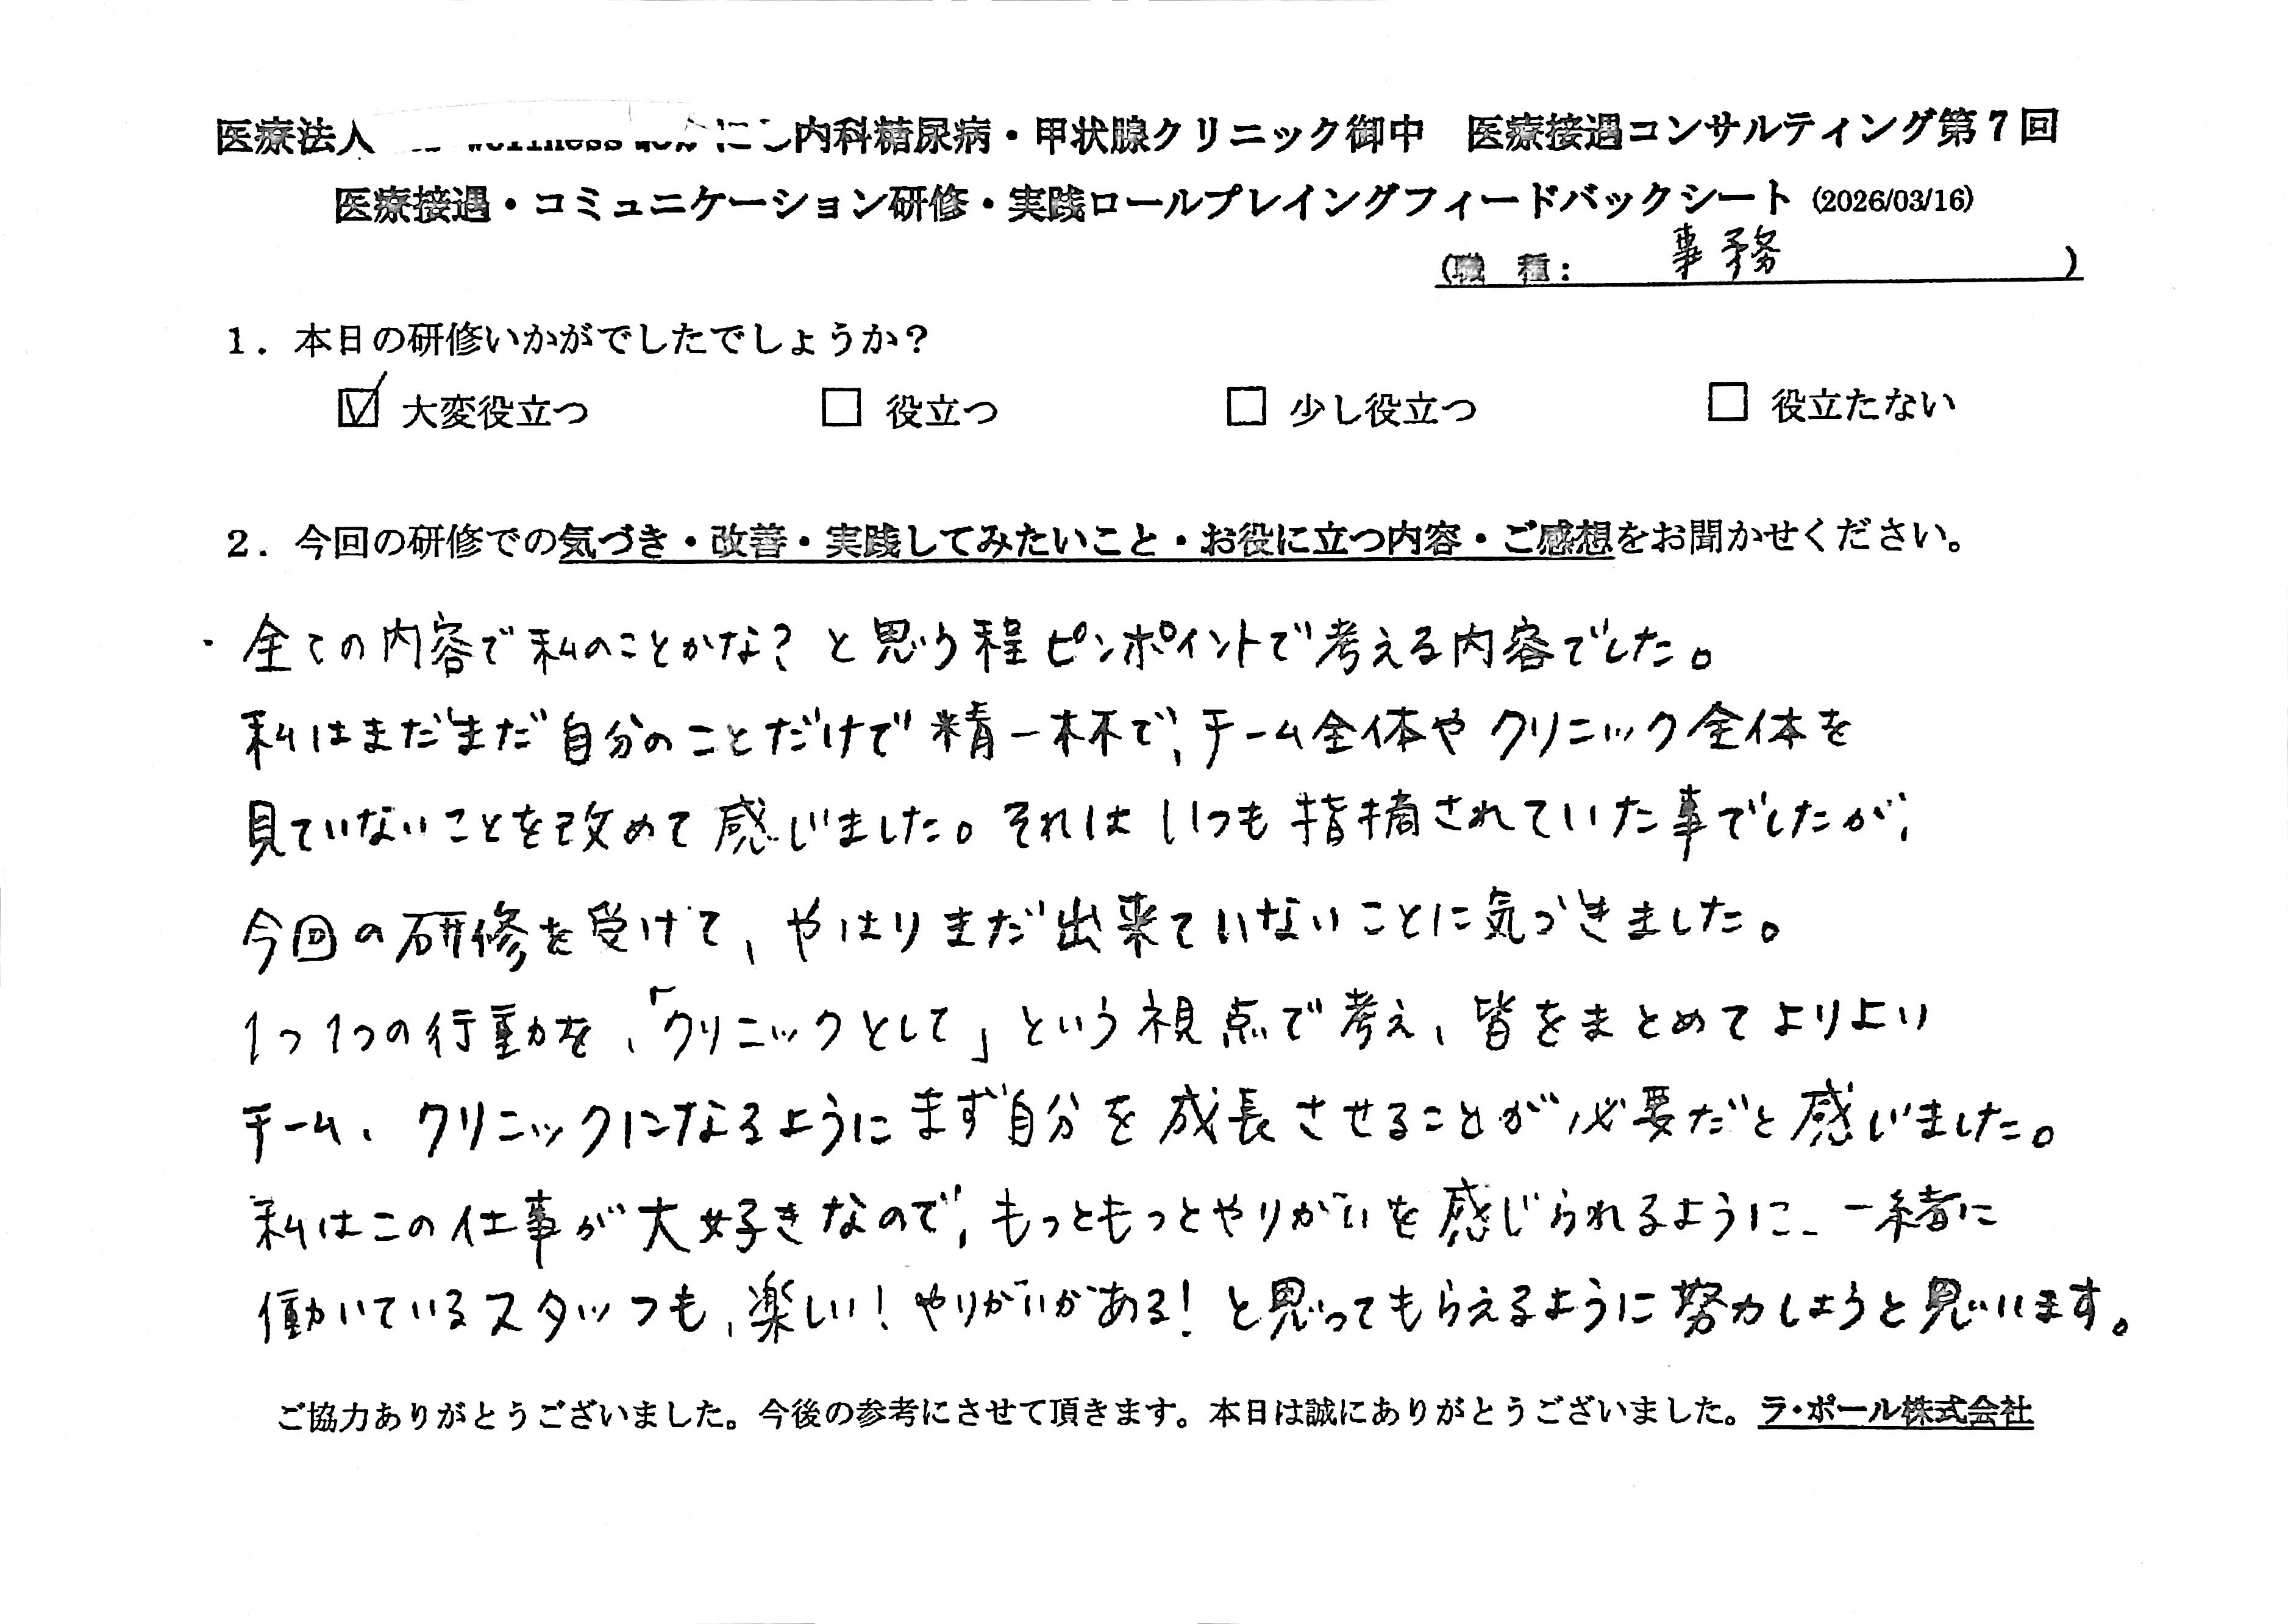 医療法人 内科糖尿病・甲状腺クリニック御中　医療接遇コンサルティング第7回
医療接遇・コミュニケーション研修・実践ロールプレイングフィードバックシート (2026/03/16)
(職　種：　事務　)
1．本日の研修いかがでしたでしょうか？
☑ 大変役立つ　□ 役立つ　□ 少し役立つ　□ 役立たない
2．今回の研修での気づき・改善・実践してみたいこと・お役に立つ内容・ご感想をお聞かせください。
・全ての内容で私のことかな？と思う程ピンポイントで考える内容でした。
私はまだまだ自分のことだけで精一杯で、チーム全体やクリニック全体を
見ていないことを改めて感じました。それはいつも指摘されていた事でしたが、
今回の研修を受けて、やはりまだ出来ていないことに気づきました。
1つ1つの行動を、「クリニックとして」という視点で考え、皆をまとめてよりよい
チーム、クリニックになるようにまず自分を成長させることが必要だと感じました。
私はこの仕事が大好きなので、もっともっとやりがいを感じられるように、一緒に
働いているスタッフも、楽しい！やりがいがある！と思ってもらえるように努力しようと思います。
ご協力ありがとうございました。今後の参考にさせて頂きます。本日は誠にありがとうございました。ラ・ポール株式会社